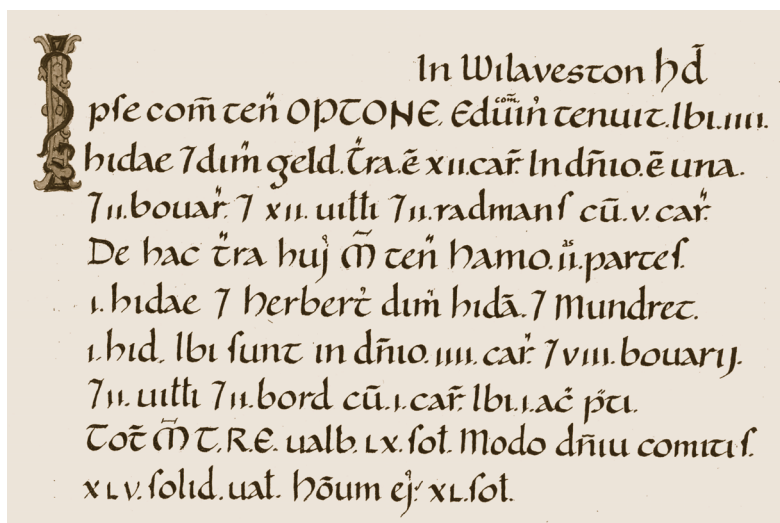 In Wilaveston hd̄
Ipse com̄ ten̄ OPTONE. Eduuin com̄ tenuit. Ibi. iiii.
hidae ⁊ dim̄ geld. Tr̄a. ē xii. car̄. In dn̄io. ē una.
⁊ ii. bouar̄. ⁊ xii. uilłi ⁊ ii. radmans cū. v. car̄.
De hac tr̄a huj M̄ ten̄ hamo. ii.as partes.
i. hidae ⁊ herbert̄ dim̄ hidā. ⁊ Mundret.
i. hid. Ibi sunt in dn̄io. iiii. car̄. ⁊ viii. bouarij.
⁊ ii. uilłi ⁊ ii. bord cū. i. car̄. Ibi. i. ac̄ p̄ti.
Tot̄ M̄ T.R.E. ualb. LX. soł. Modo dn̄iu comitis.
XLV. solid. uał. hōum ej. XL. soł.